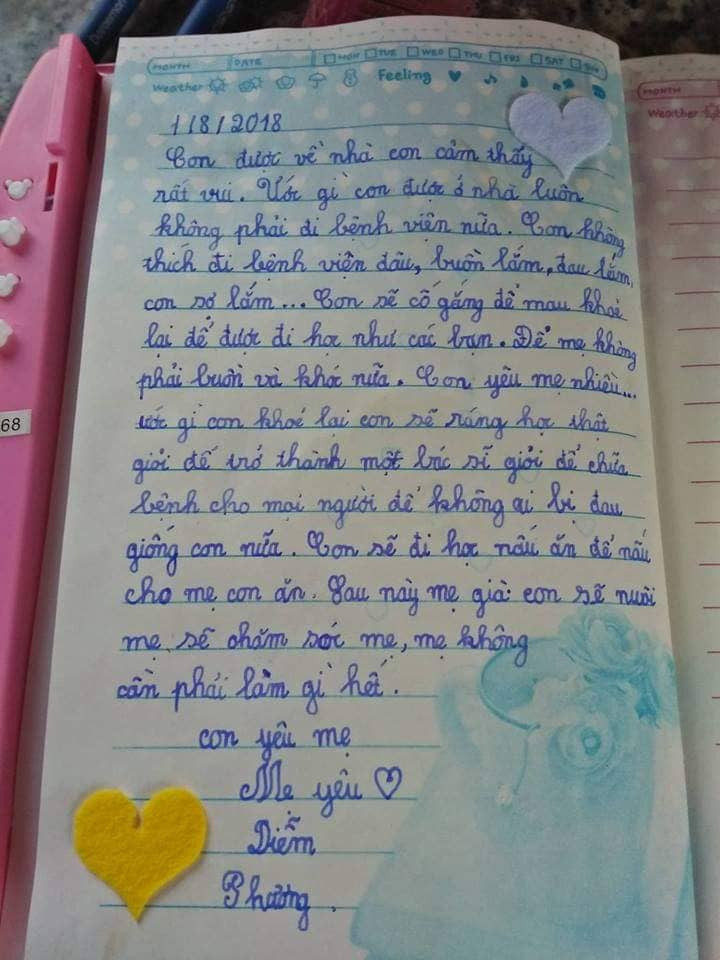 MONTH DATE MON TUE WED THU FRI SAT SUN
Weather Feeling
1/8/2018
Con được về nhà con cảm thấy
rất vui. Ước gì con được ở nhà luôn
không phải đi bệnh viện nữa. Con không
thích đi bệnh viện đâu, buồn lắm, đau lắm,
con sợ lắm... Con sẽ cố gắng để mau khoẻ
lại để được đi học như các bạn. Để mẹ không
phải buồn và khóc nữa. Con yêu mẹ nhiều...
ước gì con khoẻ lại con sẽ ráng học thật
giỏi để trở thành một bác sĩ giỏi để chữa
bệnh cho mọi người để không ai bị đau
giống con nữa. Con sẽ đi học nấu ăn để nấu
cho mẹ con ăn. Sau này mẹ già con sẽ nuôi
mẹ sẽ chăm sóc mẹ, mẹ không
cần phải làm gì hết.
con yêu mẹ
Mẹ yêu
Diễm
Phương.
68
MONTH
Weather